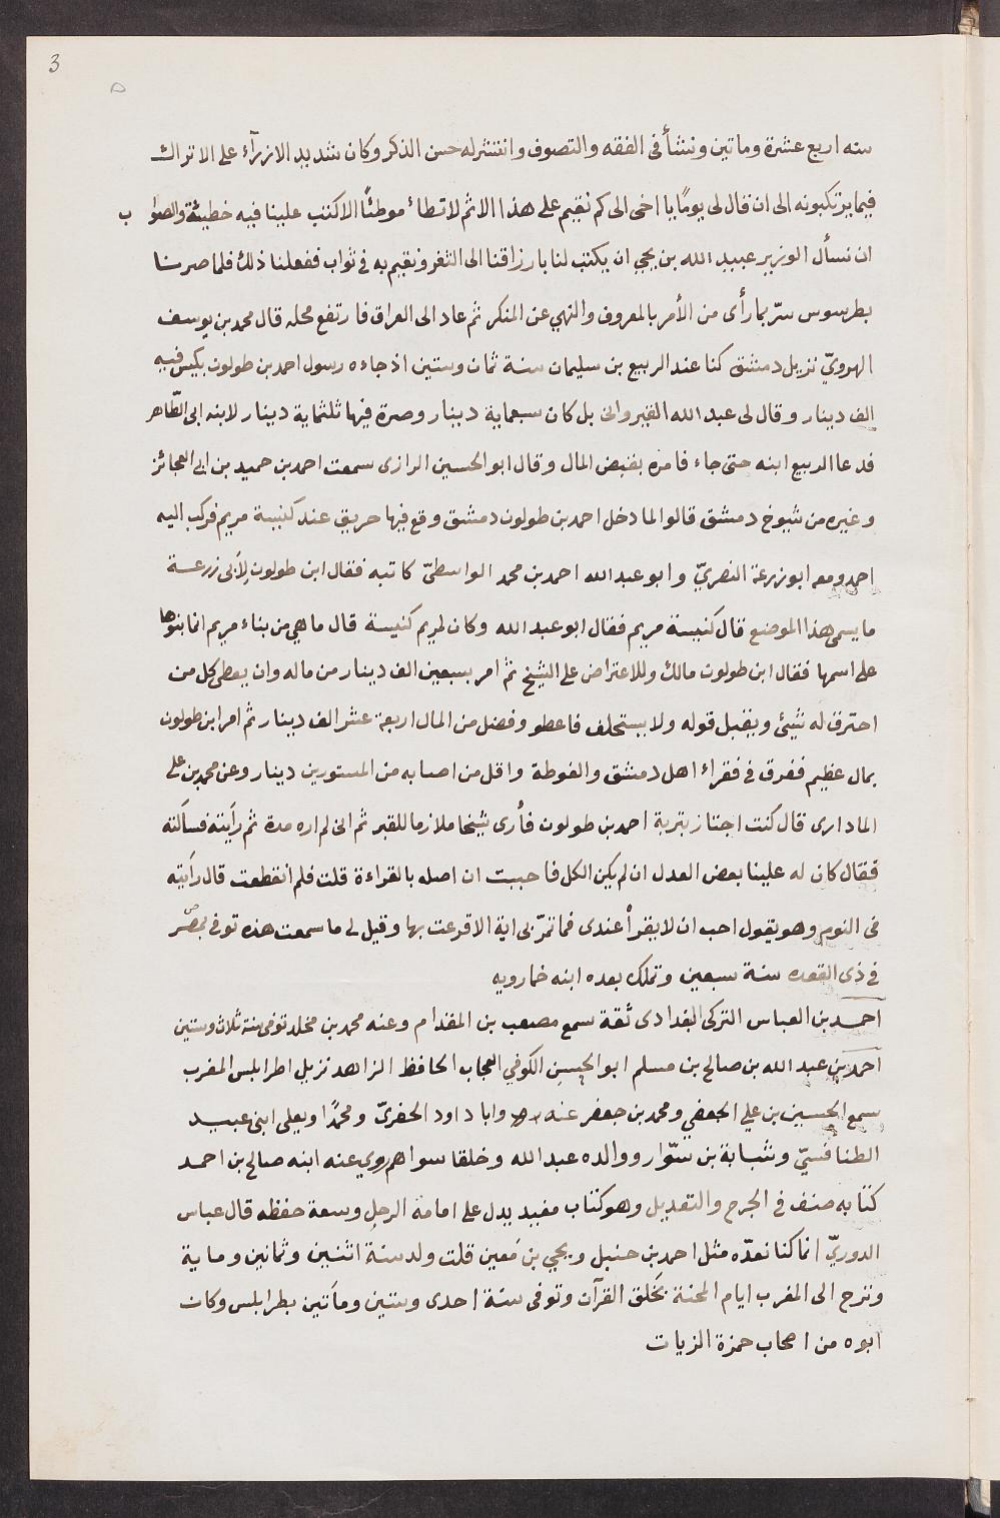 3
سنه اربع عشرة وماتين ونشأ فى الفقه والتصوف وانتشر له حسن الذكر وكان شديد الازرآء على الاتراك
فيما يرتكبونه الى ان قال لى يومًا يا اخى الى كم نقيم على هذا الاثم لا تطاء موطئًا الا كتب علينا فيه خطيئة والصواب
ان نسأل الوزير عبيد الله بن يحيي ان يكتب لنا بارزاقنا الى الثغر ونقيم به فى ثواب ففعلنا ذلك فلما صرنا
بطرسوس سرّ بما رأى من الأمر بالمعروف والنهي عن المنكر ثم عاد الى العراق فارتفع محله قال محمد بن يوسف
الهرويّ نزيل دمشق كنا عند الربيع بن سليمان سنة ثمان وستين اذ جاءه رسول احمد بن طولون بكيس فيه
الف دينار وقال لى عبد الله القيروانى بل كان سبعماية دينار وصرة فيها ثلثماية دينار لابنه ابى الطّاهر
فدعا الربيع ابنه حتى جاء فامره بقبض المال وقال ابو الحسين الرازى سمعت احمد بن حميد بن ابى العجائز
وغيره من شيوخ دمشق قالوا لما دخل احمد بن طولون دمشق وقع فيها حريق عند كنيسة مريم فركب اليه
احمد ومعه ابو زرعة النصريّ وابو عبد الله احمد بن محمد الواسطىّ كاتبه فقال ابن طولون لأبى زرعة
ما يسمى هذا الموضع قال كنيسة مريم فقال ابو عبد الله وكان لمريم كنيسة قال ما هي من بناء مريم انما بنوها
على اسمها فقال ابن طولون مالك وللاعتراض على الشيخ ثم امر بسبعين الف دينار من ماله وان يعطى كل من
احترق له شيئ ويقبل قوله ولا يستحلف فاعطو وفضل من المال اربعة عشر الف دينار ثم امر ابن طولون
بمال عظيم ففرق فى فقراء اهل دمشق والغوطة واقل من اصابه من المستورين دينار وعن محمد بن على
المادارى قال كنت اجتاز بتربة احمد بن طولون فأرى شيخا ملازما للقبر ثم انى لم اره مدة ثم رأيته فسألته
فقال كان له علينا بعض العدل ان لم يكن الكل فاحببت ان اصله بالقراءة قلت فلم انقطعت قال رأيته
فى النوم وهو يقول احب ان لا يقرأ عندى فما تمرّ بى اية الا قرعت بها وقيل لى ما سمعت هذه توفى بمصر
فى ذى القعده سنة سبعين وتملك بعده ابنه خمارويه
احمد بن العباس التركى البغدادى ثقة سمع مصعب بن المقدام وعنه محمد بن مخلد توفى سنة ثلاث وستين
احمد بن عبد الله بن صالح بن مسلم ابو الحسين الكوفي العجاب الحافظ الزاهد نزيل اطرابلس المغرب
سمع الحسين بن علي الجعفي ومحمد بن جعفر عنه وابا داود الحفرىّ ومحمدًا ويعلى ابنى عبيد
الطنافسيّ وشبابة بن سّوار ووالده عبد الله وخلقا سواهم روي عنه ابنه صالح بن احمد
كتابه صنف فى الجرح والتعديل وهو كتاب مفيد يدل على امامة الرجل وسعة حفظه قال عباس
الدوريّ انما كنا نعدّه مثل احمد بن حنبل ويحيي بن مَعين قلت ولد سنة اثنين وثمانين وماية
ونزح الى المغرب ايام المحنة بخَلق القرآن وتوفى سنة احدى وستين ومأتين بطرابلس وكان
ابوه من اصحاب حمزة الزيات